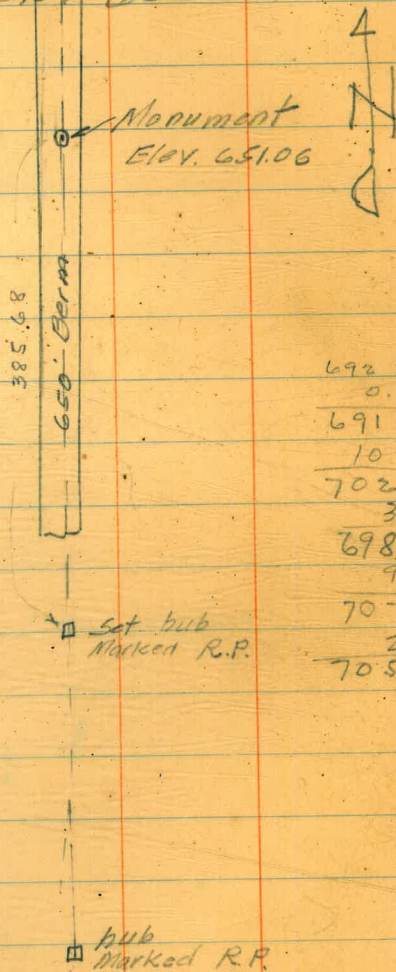 Monument
Elev. 651.06
N
385.68
650' Berm
692
0.
691
10
702
3
698
9
70
2
705
set hub
Marked R.P.
hub
Marked R.P.